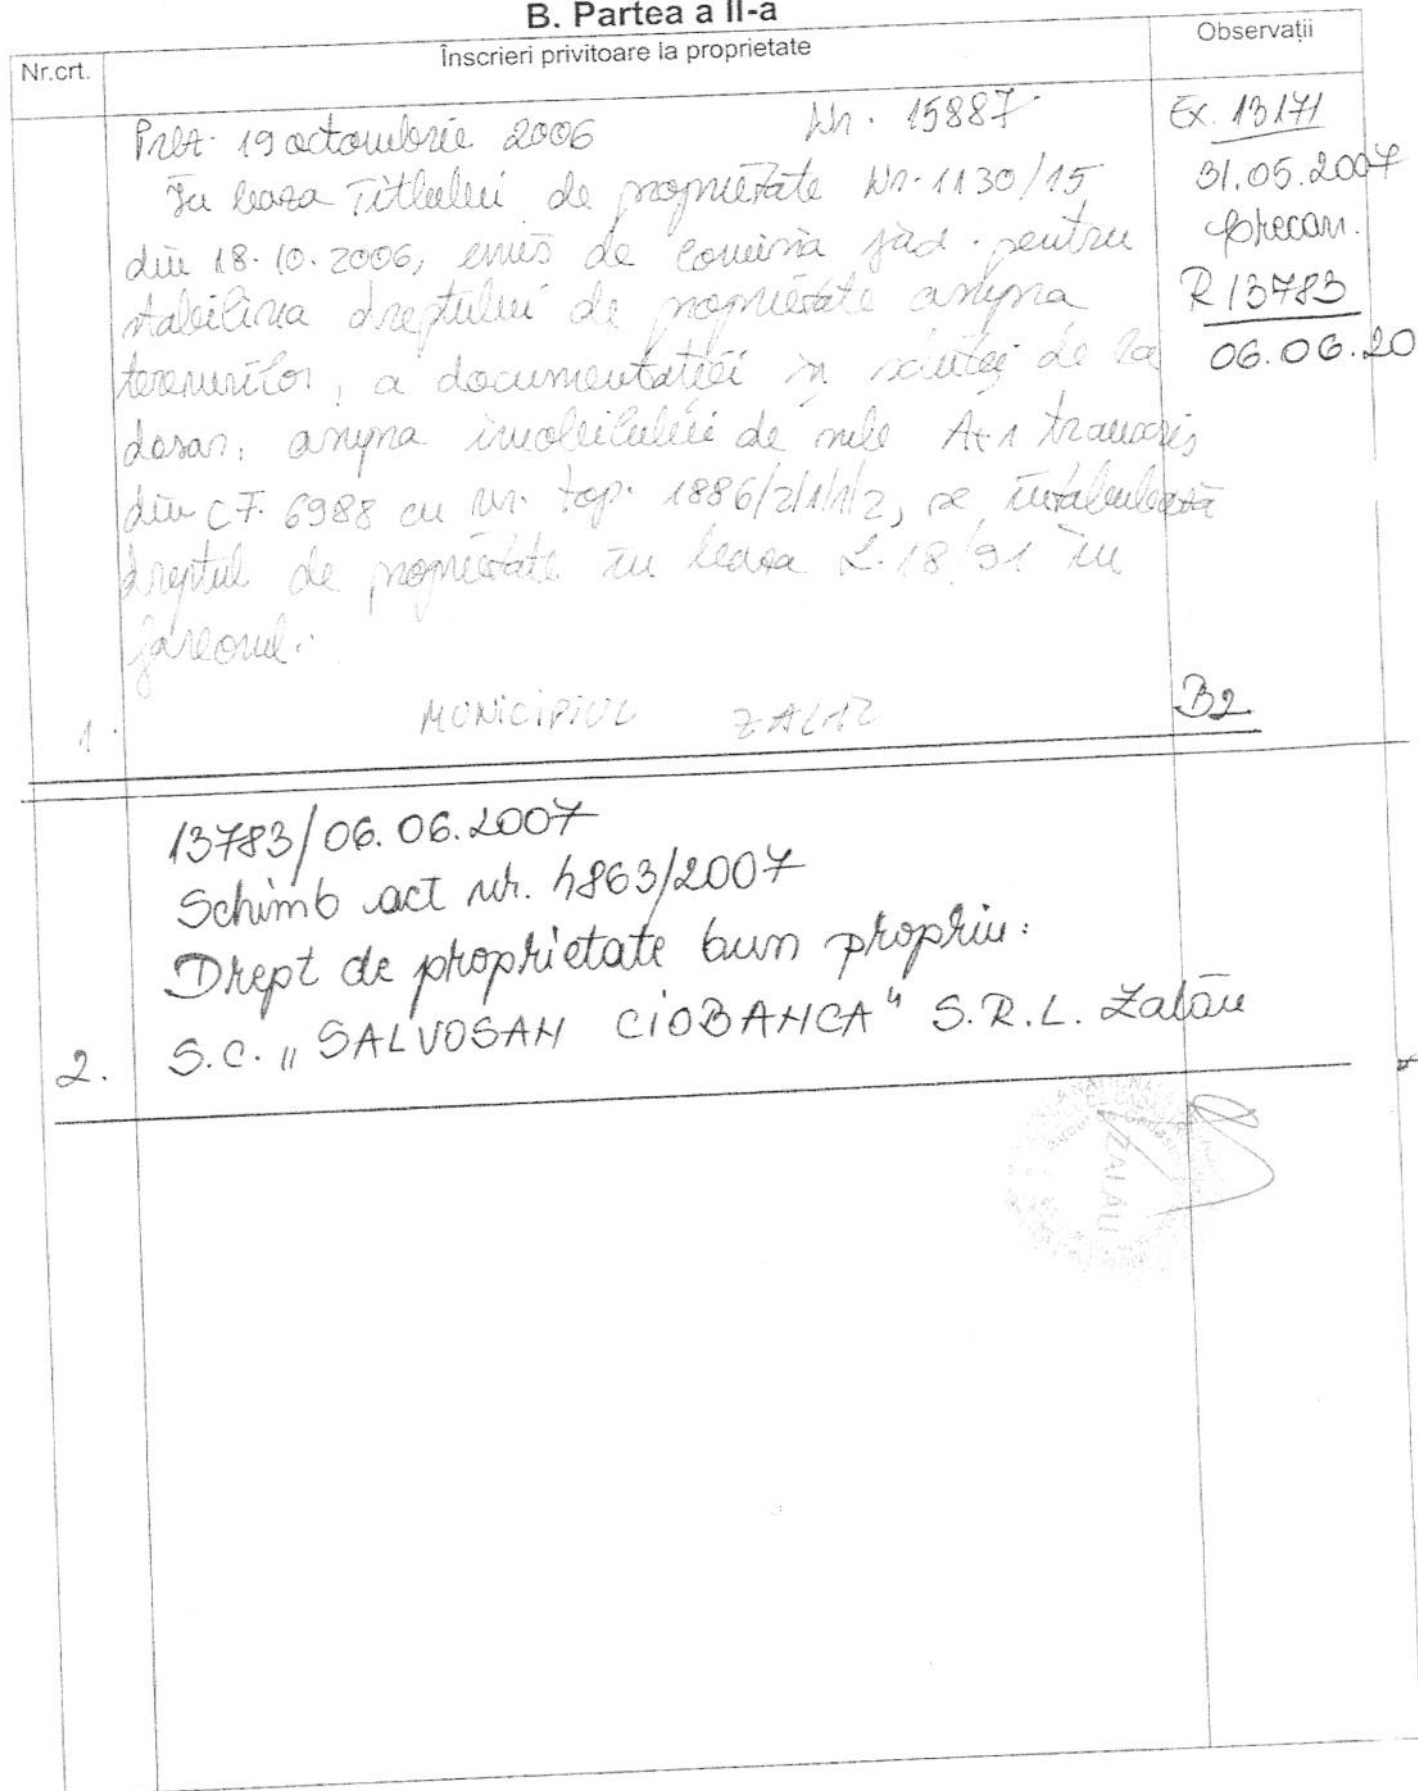 B. Partea a II-a
Nr.crt.
Înscrieri privitoare la proprietate
Observații
Prez. 19 octombrie 2006 Nr. 15887
În baza Titlului de proprietate Nr. 1130/15
din 18.10.2006, emis de comisia jud. pentru
stabilirea dreptului de proprietate asupra
terenurilor, a documentației și schiței de la
dosar, asupra imobilului de sub A+1 transcris
din CF. 6988 cu nr. top. 1886/2/1/1/2, se intabulează
dreptul de proprietate în baza L.18/91 în
favorul.
1. MUNICIPIUL ZALĂU
Ex. 13171
31.05.2007
R 13783
06.06.20
B2
13783/06.06.2007
Schimb act nr. 4863/2007
Drept de proprietate bun propriu:
2. S.C. „SALVOSAN CIOBANCA" S.R.L. Zalău
ZALĂU